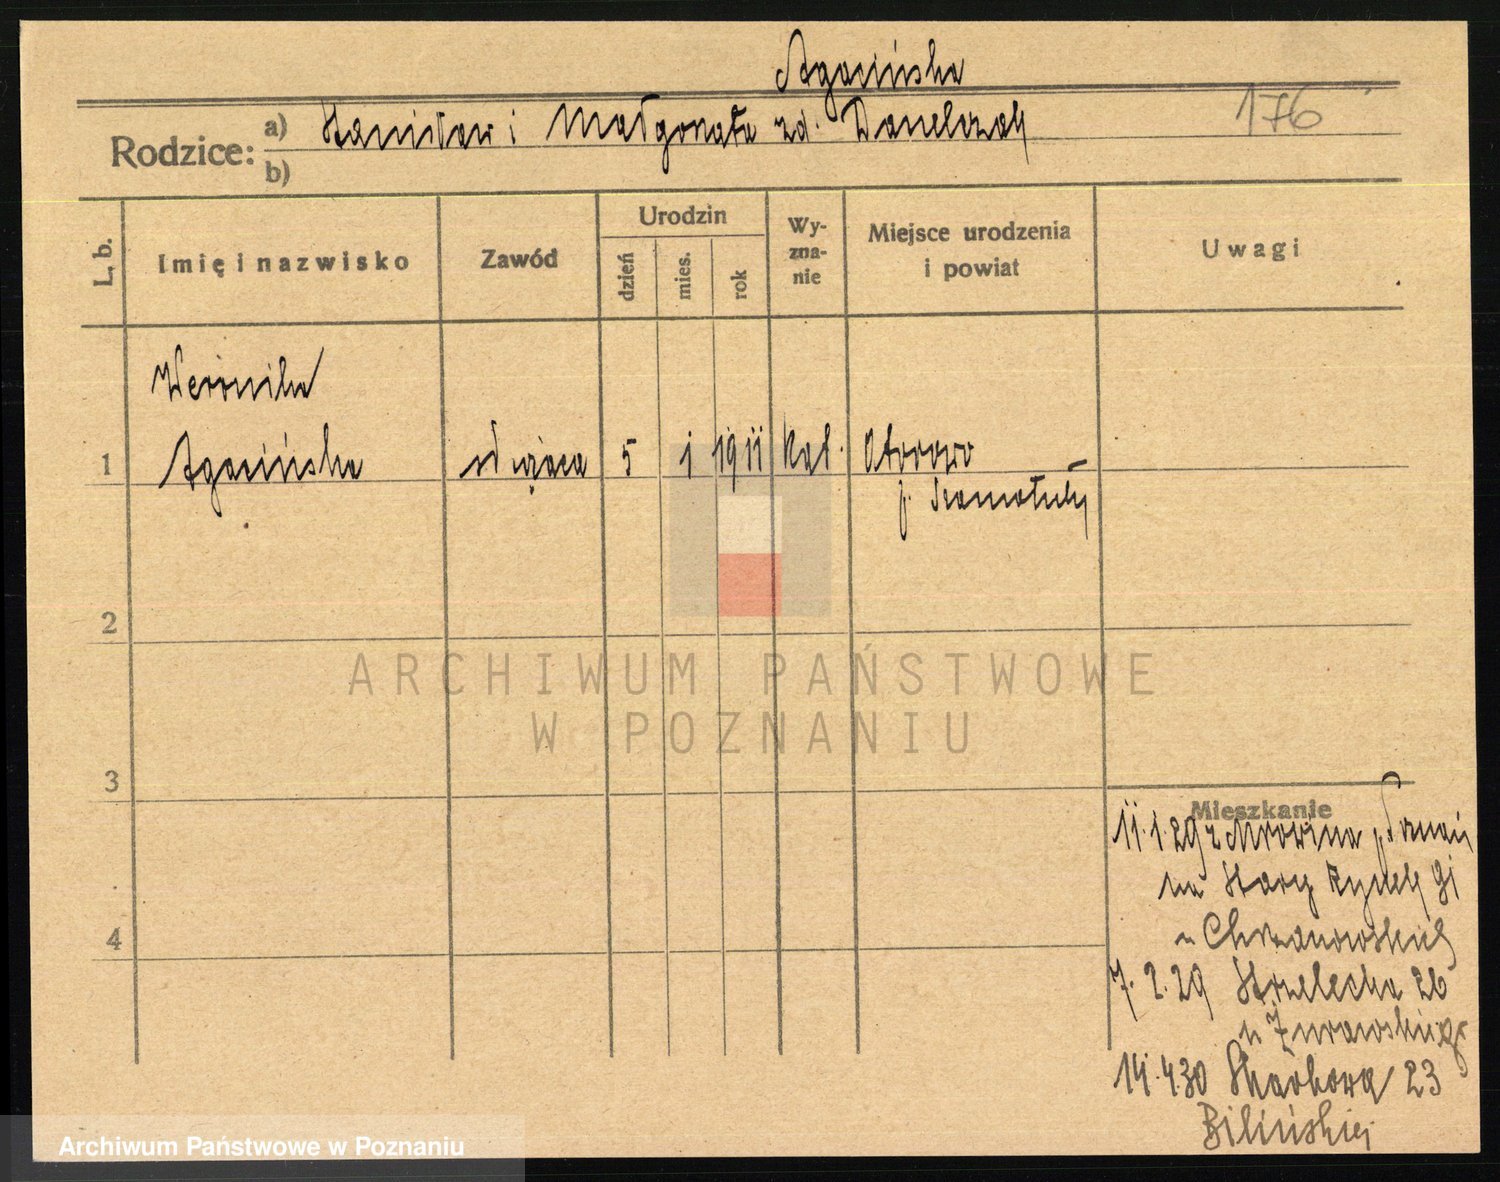 Agacińska
176
Rodzice: a) Stanisław i Małgorzata zd. Danelczak
b)
L. b.
Imię i nazwisko
Zawód
Urodzin
dzień
mies.
rok
Wy-
zna-
nie
Miejsce urodzenia
i powiat
Uwagi
Weronika
1 Agacińska służąca 5 1 1911 kat. Otorowo
p. Szamotuły
2
3
4
ARCHIWUM PAŃSTWOWE
W POZNANIU
Mieszkanie
11.1.29 z Mrowina p. Poznań
na Stary Rynek 91
u Chrzanowskich
7.2.29 Strzelecka 26
u Żurawskiego
14.4.30 Skarbowa 23
Bilińskiej
Archiwum Państwowe w Poznaniu